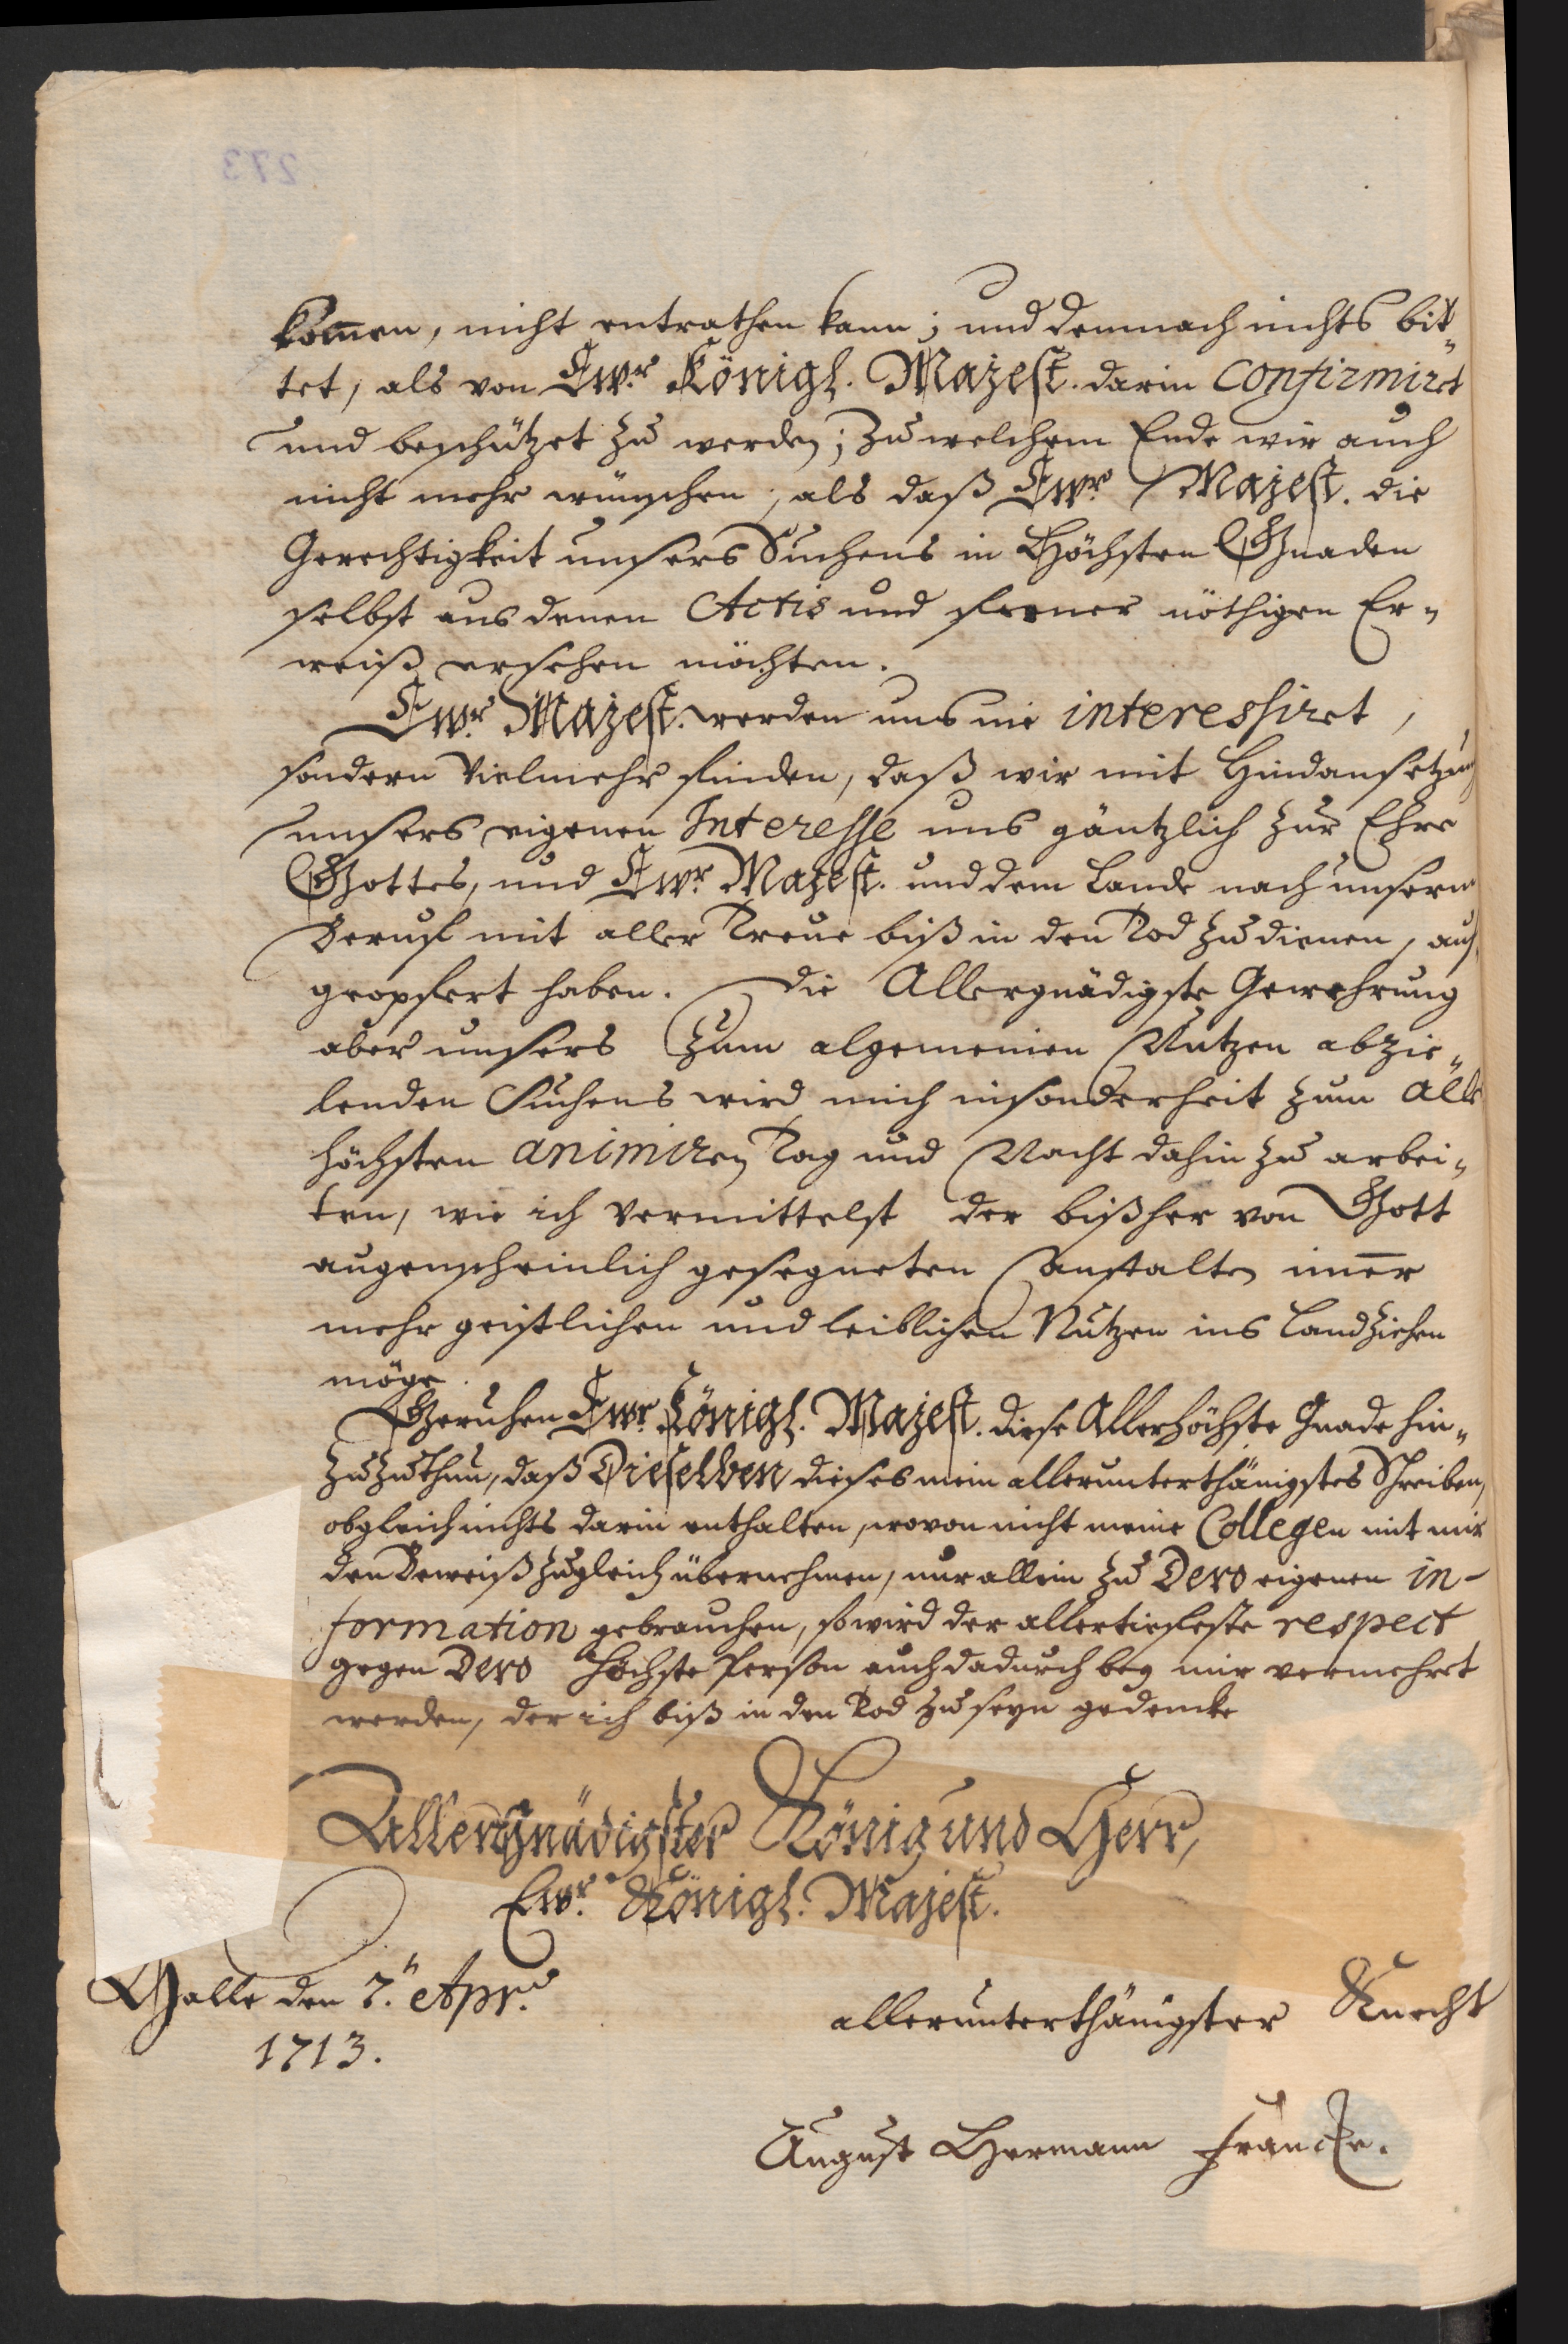 273
kom̄en, nicht entrathen kann; und demnach nichts bit„
tet, als von Ewr. Königl. Majest. darin confirmiret
und beschützet zu werden; zu welchem Ende wir auch
nicht mehr wünschen, als daß Ewr. Majest. die
Gerechtigkeit unsers Suchens in Höchsten Gnaden
selbst aus denen Actis und ferner nöthigen Er„
weiß ersehen möchten.
Ewr. Majest. werden uns nie interessiret,
sondern vielmehr finden, daß wir mit Hindansetzung
unsers eigenen Interesse uns gäntzlich zur Ehre
Gottes, und Ewr. Majest. und dem Lande nach unserm
Beruf mit aller Treue biß in den Tod zu dienen, auf
geopfert haben. Die Allergnädigste Gewehrung
aber unsers zum algemeinen Nutzen abzie„
lenden Suchens wird mich insonderheit zum aller
höchsten animiren Tag und Nacht dahin zu arbei„
ten, wie ich vermittelst der bißher von Gott
augenscheinlich gesegneten Anstalten im̄er
mehr geistlichen und leiblichen Nutzen ins Land ziehen
möge.
Geruhen Ewr. Königl. Majest. diese Allerhöchste Gnade hin„
zuzuthun, daß Dieselben dieses mein allerunterthänigstes Schreiben,
obgleich nichts darin enthalten, wovon nicht meine Collegen mit mir
den Beweiß zugleich übernehmen, nur allein zu Dero eigenen in-
formation gebrauchen, so wird der allertiefeste respect
gegen Dero Höchste Person auch dadurch bey mir vermehret
werden, der ich biß in den Tod zu seyn gedencke
Allergnädigster König und Herr,
Ewr. Königl. Majest.
Halle den 7.n Apr.
1713.
allerunterthänigster Knecht
August Hermann Francke.